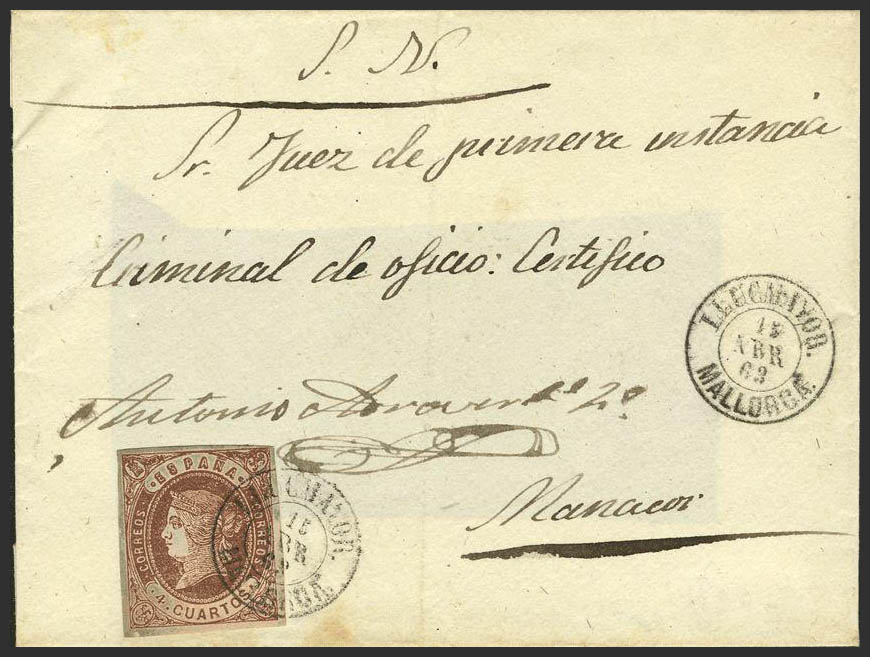 S. N.
Sr. Juez de primera instancia
Criminal de oficio: Certifico
LLUCMAYOR.
15
ABR
63
MALLORCA.
Antonio 2º
Manacor
ESPAÑA
CORREOS
CORREOS
4 CUARTOS
15
ABR